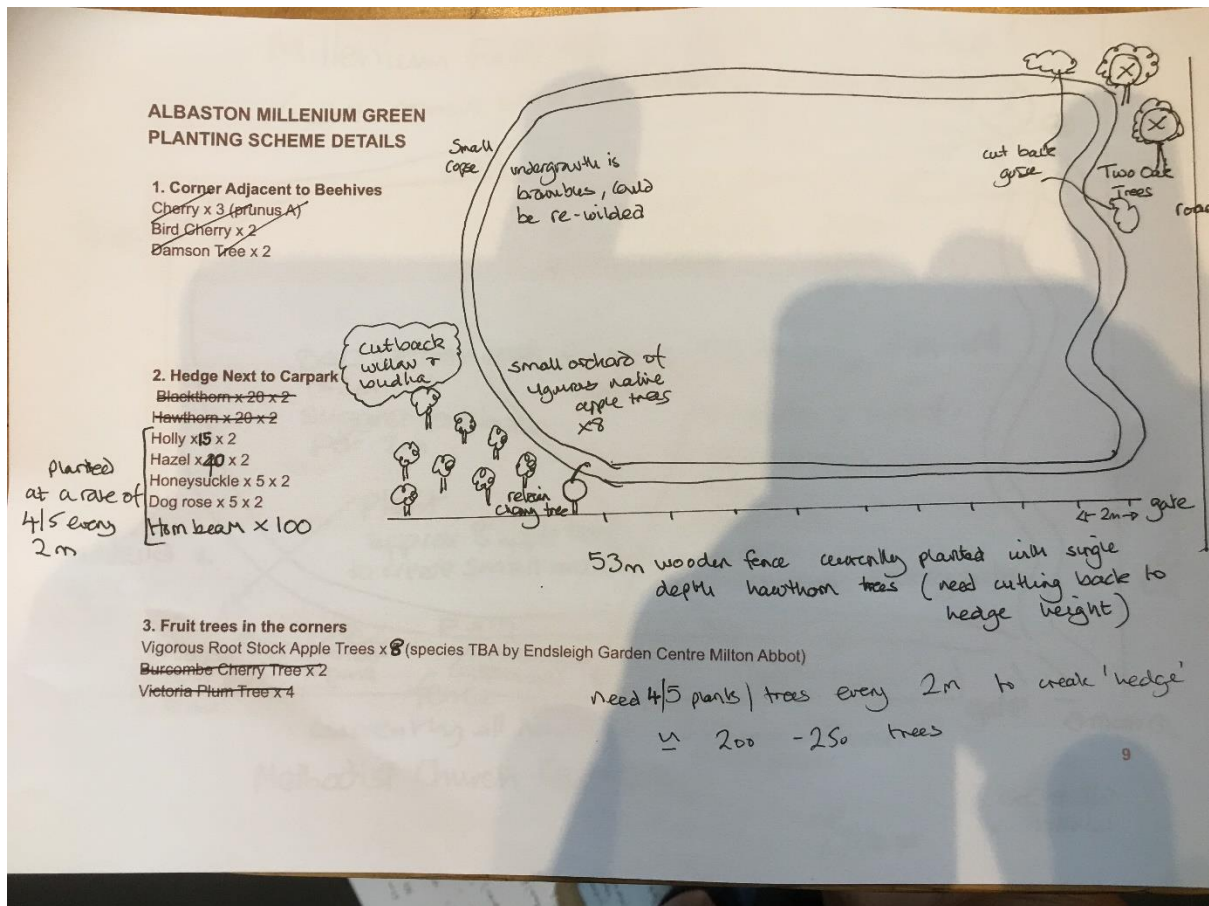 ALBASTON MILLENIUM GREEN
PLANTING SCHEME DETAILS
1. Corner Adjacent to Beehives
Cherry x 3 (prunus A)
Bird Cherry x 2
Damson Tree x 2
2. Hedge Next to Carpark
Blackthorn x 20 x 2
Hawthorn x 20 x 2
Holly x15 x 2
Hazel x x 2
Honeysuckle x 5 x 2
Dog rose x 5 x 2
Hornbeam x 100
planted
at a rate of
4/5 every
2m
3. Fruit trees in the corners
Vigorous Root Stock Apple Trees x 8 (species TBA by Endsleigh Garden Centre Milton Abbot)
Burcombe Cherry Tree x 2
Victoria Plum Tree x 4
Small
copse
undergrowth is
brambles, could
be re-wilded
cut back
gorse
X
X
Two Oak
Trees
road
cut back
willow +
small orchard of
vigorous native
apple trees
x8
retain
cherry tree
2m
gate
53m wooden fence currently planted with single
depth hawthorn trees (need cutting back to
hedge height)
need 4/5 plants / trees every 2m to create 'hedge'
≃ 200 - 250 trees
9